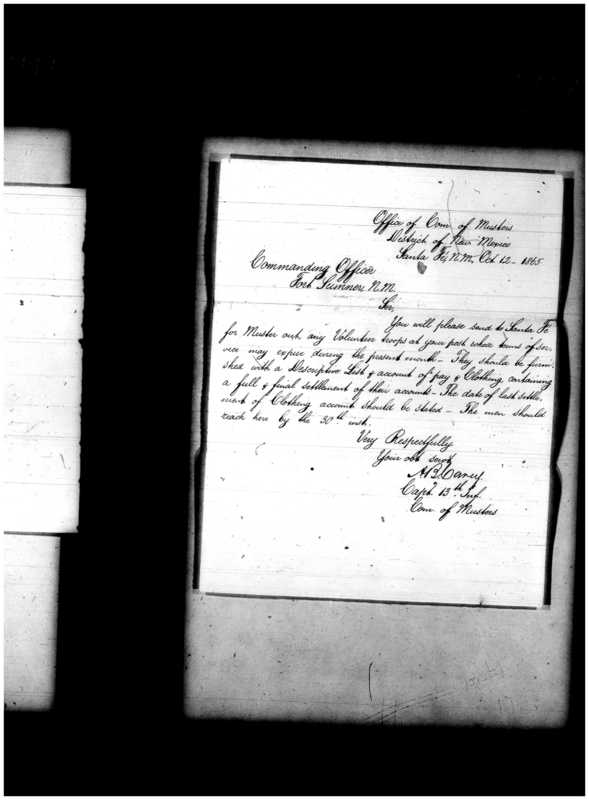 Office of Com. of Musters
District of New Mexico
Santa Fe, N.M, Oct 12 - 1865
Commanding Officer
Fort Sumner N.M.
Sir,
You will please send to Santa Fe
for Muster out, any Volunteer troops at your post whose terms of ser-
vice may expire during the present month - They should be furni-
shed with a Descriptive List & account of pay & Clothing containing
a full & final settlement of their accounts - The date of last settle-
ment of Clothing account should be stated - The men should
reach here by the 30th inst.
Very Respectfully
Your obt servt
A B Carey
Capt. 13th Inf.
Com of Musters